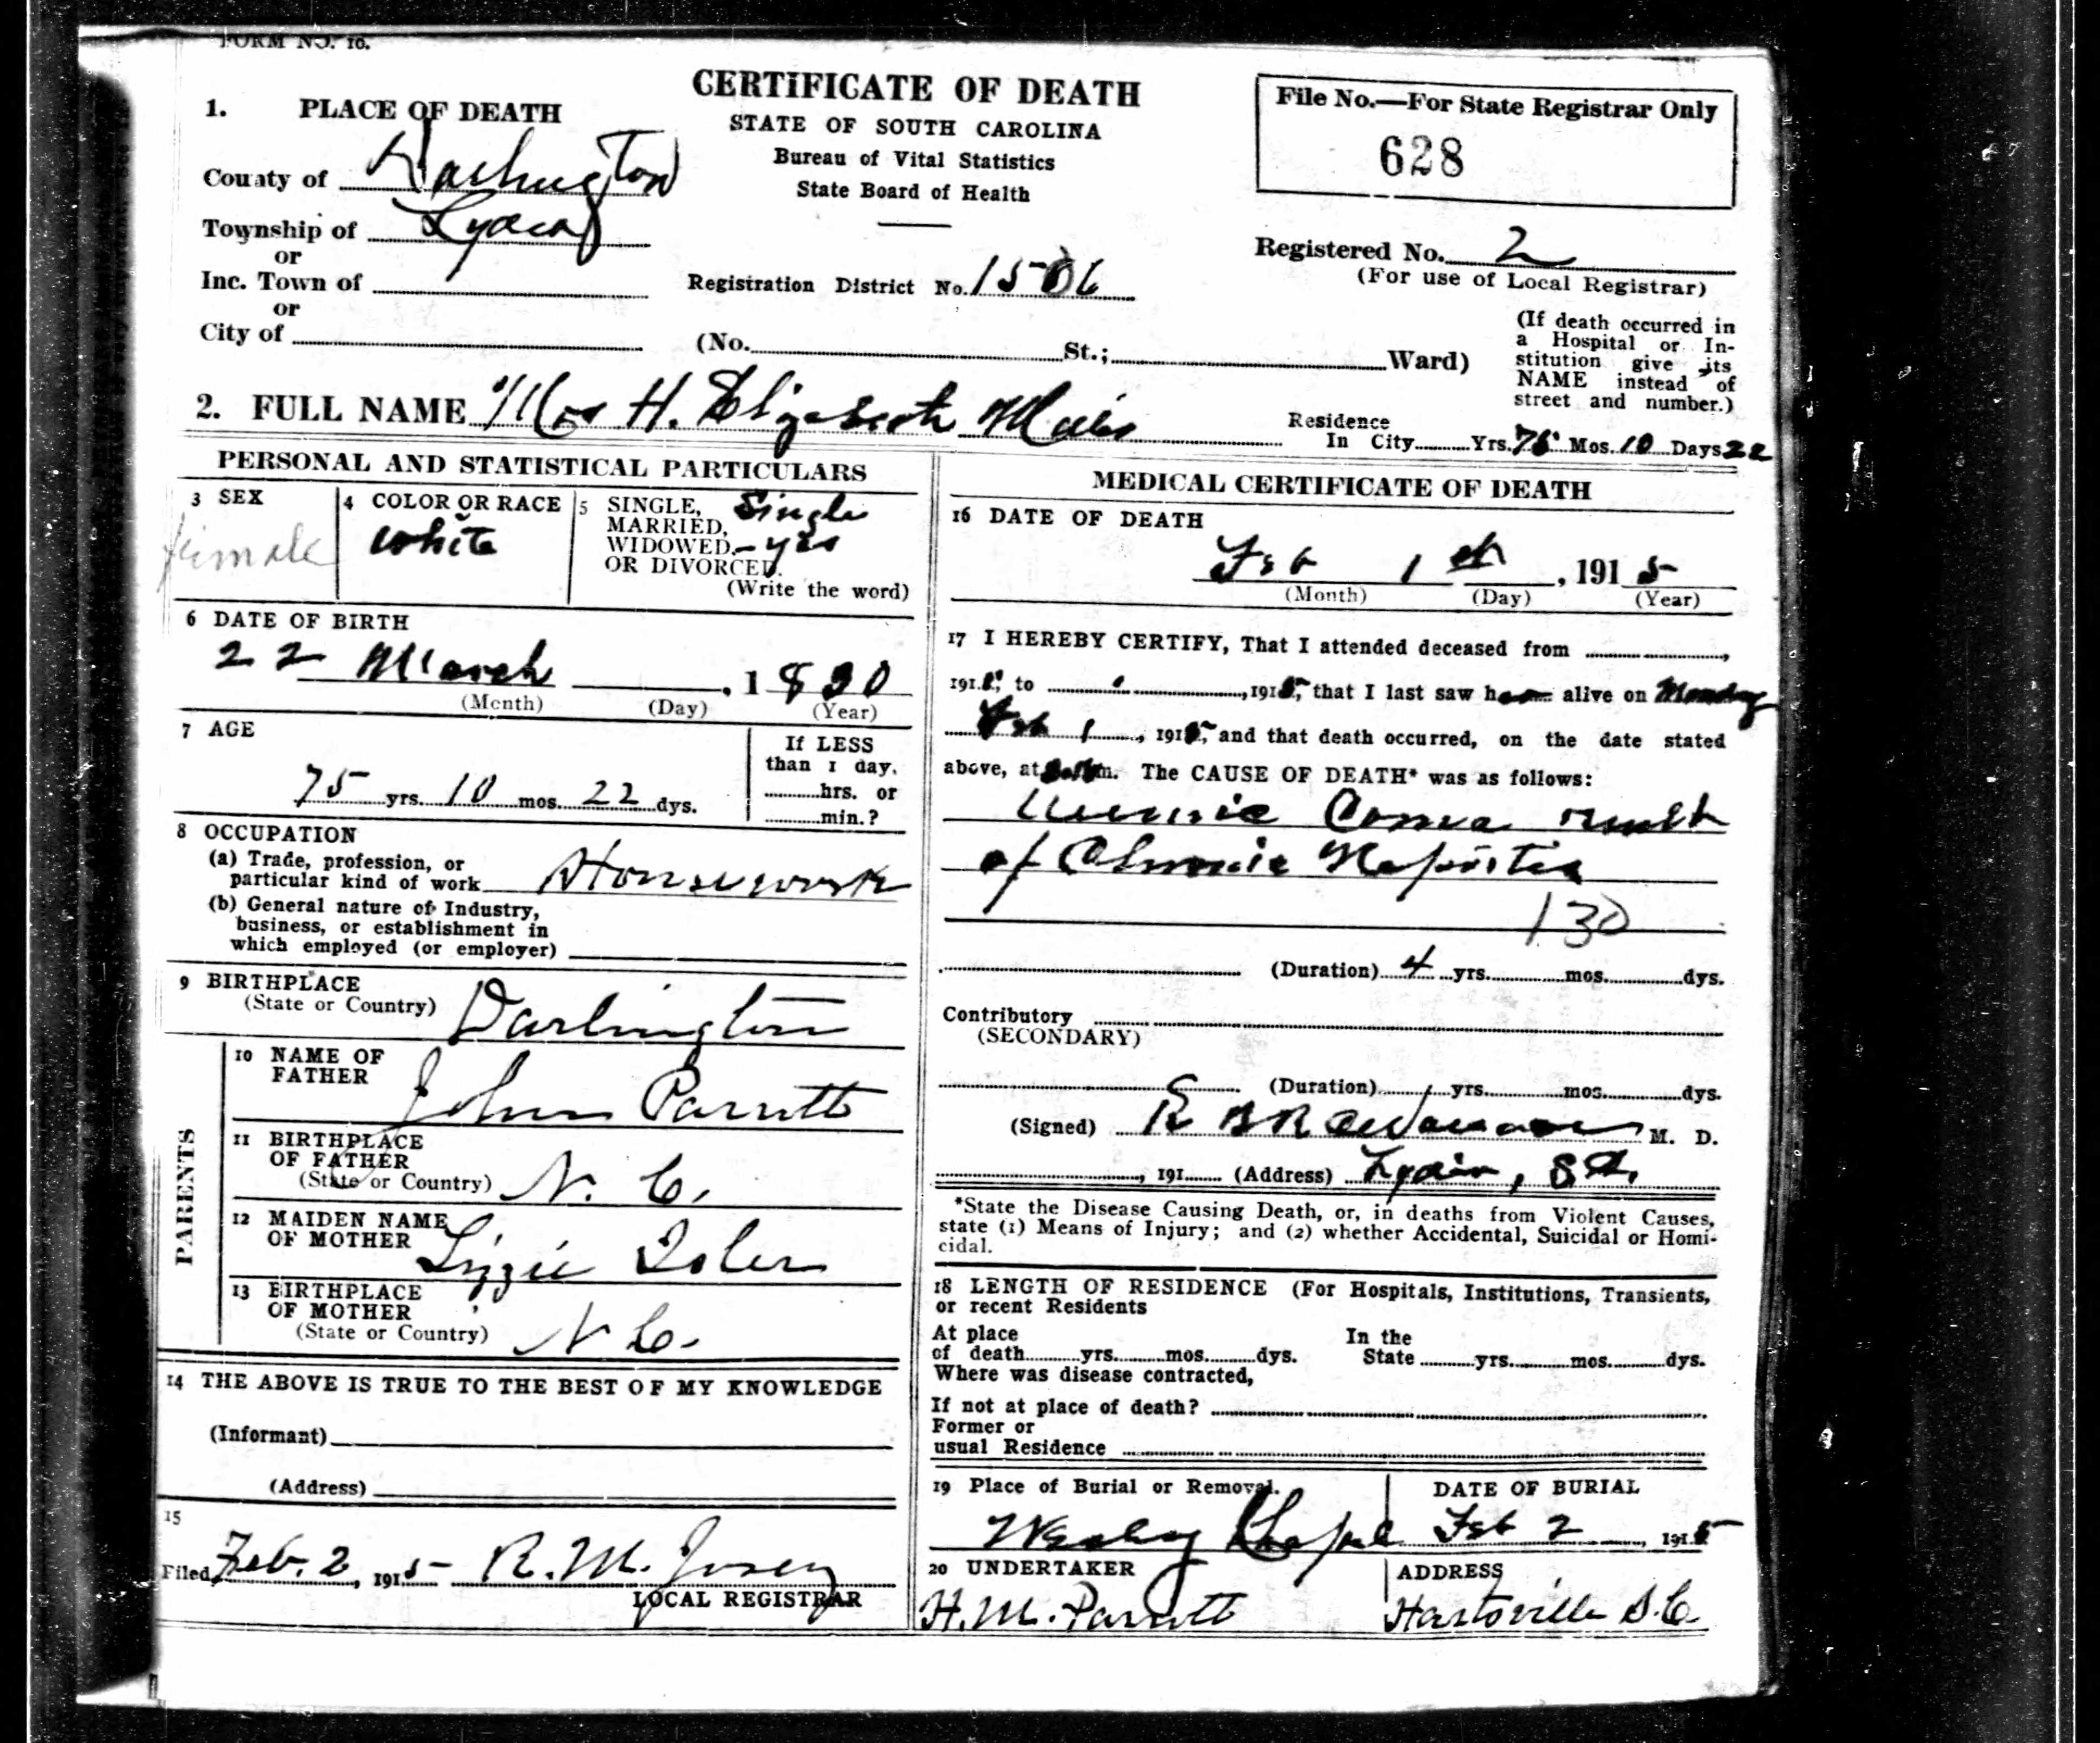 FORM NO. 10.
CERTIFICATE OF DEATH
STATE OF SOUTH CAROLINA
Bureau of Vital Statistics
State Board of Health
File No.—For State Registrar Only
628
1. PLACE OF DEATH
County of Darlington
Township of Lydia
or
Inc. Town of
or
City of
Registration District No. 1506
Registered No. 2
(For use of Local Registrar)
(No. St.; Ward)
(If death occurred in
a Hospital or In-
stitution give its
NAME instead of
street and number.)
2. FULL NAME Mrs H. Elizabeth
Residence
In City Yrs. 75 Mos. 10 Days 22
PERSONAL AND STATISTICAL PARTICULARS
3 SEX
female
4 COLOR OR RACE
white
5 SINGLE, Single
MARRIED,
WIDOWED - yes
OR DIVORCED.
(Write the word)
6 DATE OF BIRTH
22 March , 1830
(Month) (Day) (Year)
7 AGE
75 yrs. 10 mos. 22 dys.
If LESS
than 1 day,
hrs. or
min.?
8 OCCUPATION
(a) Trade, profession, or
particular kind of work Housework
(b) General nature of Industry,
business, or establishment in
which employed (or employer)
9 BIRTHPLACE
(State or Country) Darlington
PARENTS
10 NAME OF
FATHER John Parrott
11 BIRTHPLACE
OF FATHER
(State or Country) N. C.
12 MAIDEN NAME
OF MOTHER Lizzie Isler
13 BIRTHPLACE
OF MOTHER
(State or Country) N C.
14 THE ABOVE IS TRUE TO THE BEST OF MY KNOWLEDGE
(Informant)
(Address)
15
Filed Feb. 2, 1915 R. M. Josey
LOCAL REGISTRAR
MEDICAL CERTIFICATE OF DEATH
16 DATE OF DEATH
Feb 1 , 1915
(Month) (Day) (Year)
17 I HEREBY CERTIFY, That I attended deceased from ,
1915, to , 1915, that I last saw her alive on Monday
Feb 1, 1915, and that death occurred, on the date stated
above, at m. The CAUSE OF DEATH* was as follows:
Uremic Coma result
of Chronic Nephritis
130
(Duration) 4 yrs. mos. dys.
Contributory
(SECONDARY)
(Duration) yrs. mos. dys.
(Signed) M. D.
, 191 (Address) Lydia, S C.
*State the Disease Causing Death, or, in deaths from Violent Causes,
state (1) Means of Injury; and (2) whether Accidental, Suicidal or Homi-
cidal.
18 LENGTH OF RESIDENCE (For Hospitals, Institutions, Transients,
or recent Residents
At place
of death yrs. mos. dys.
In the
State yrs. mos. dys.
Where was disease contracted,
If not at place of death?
Former or
usual Residence
19 Place of Burial or Removal.
Wesley Chapel
DATE OF BURIAL
Feb 2, 1915
20 UNDERTAKER
H. M. Parrott
ADDRESS
Hartsville S. C.